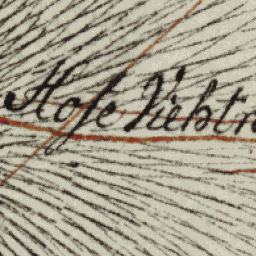 Hofe Viehtr